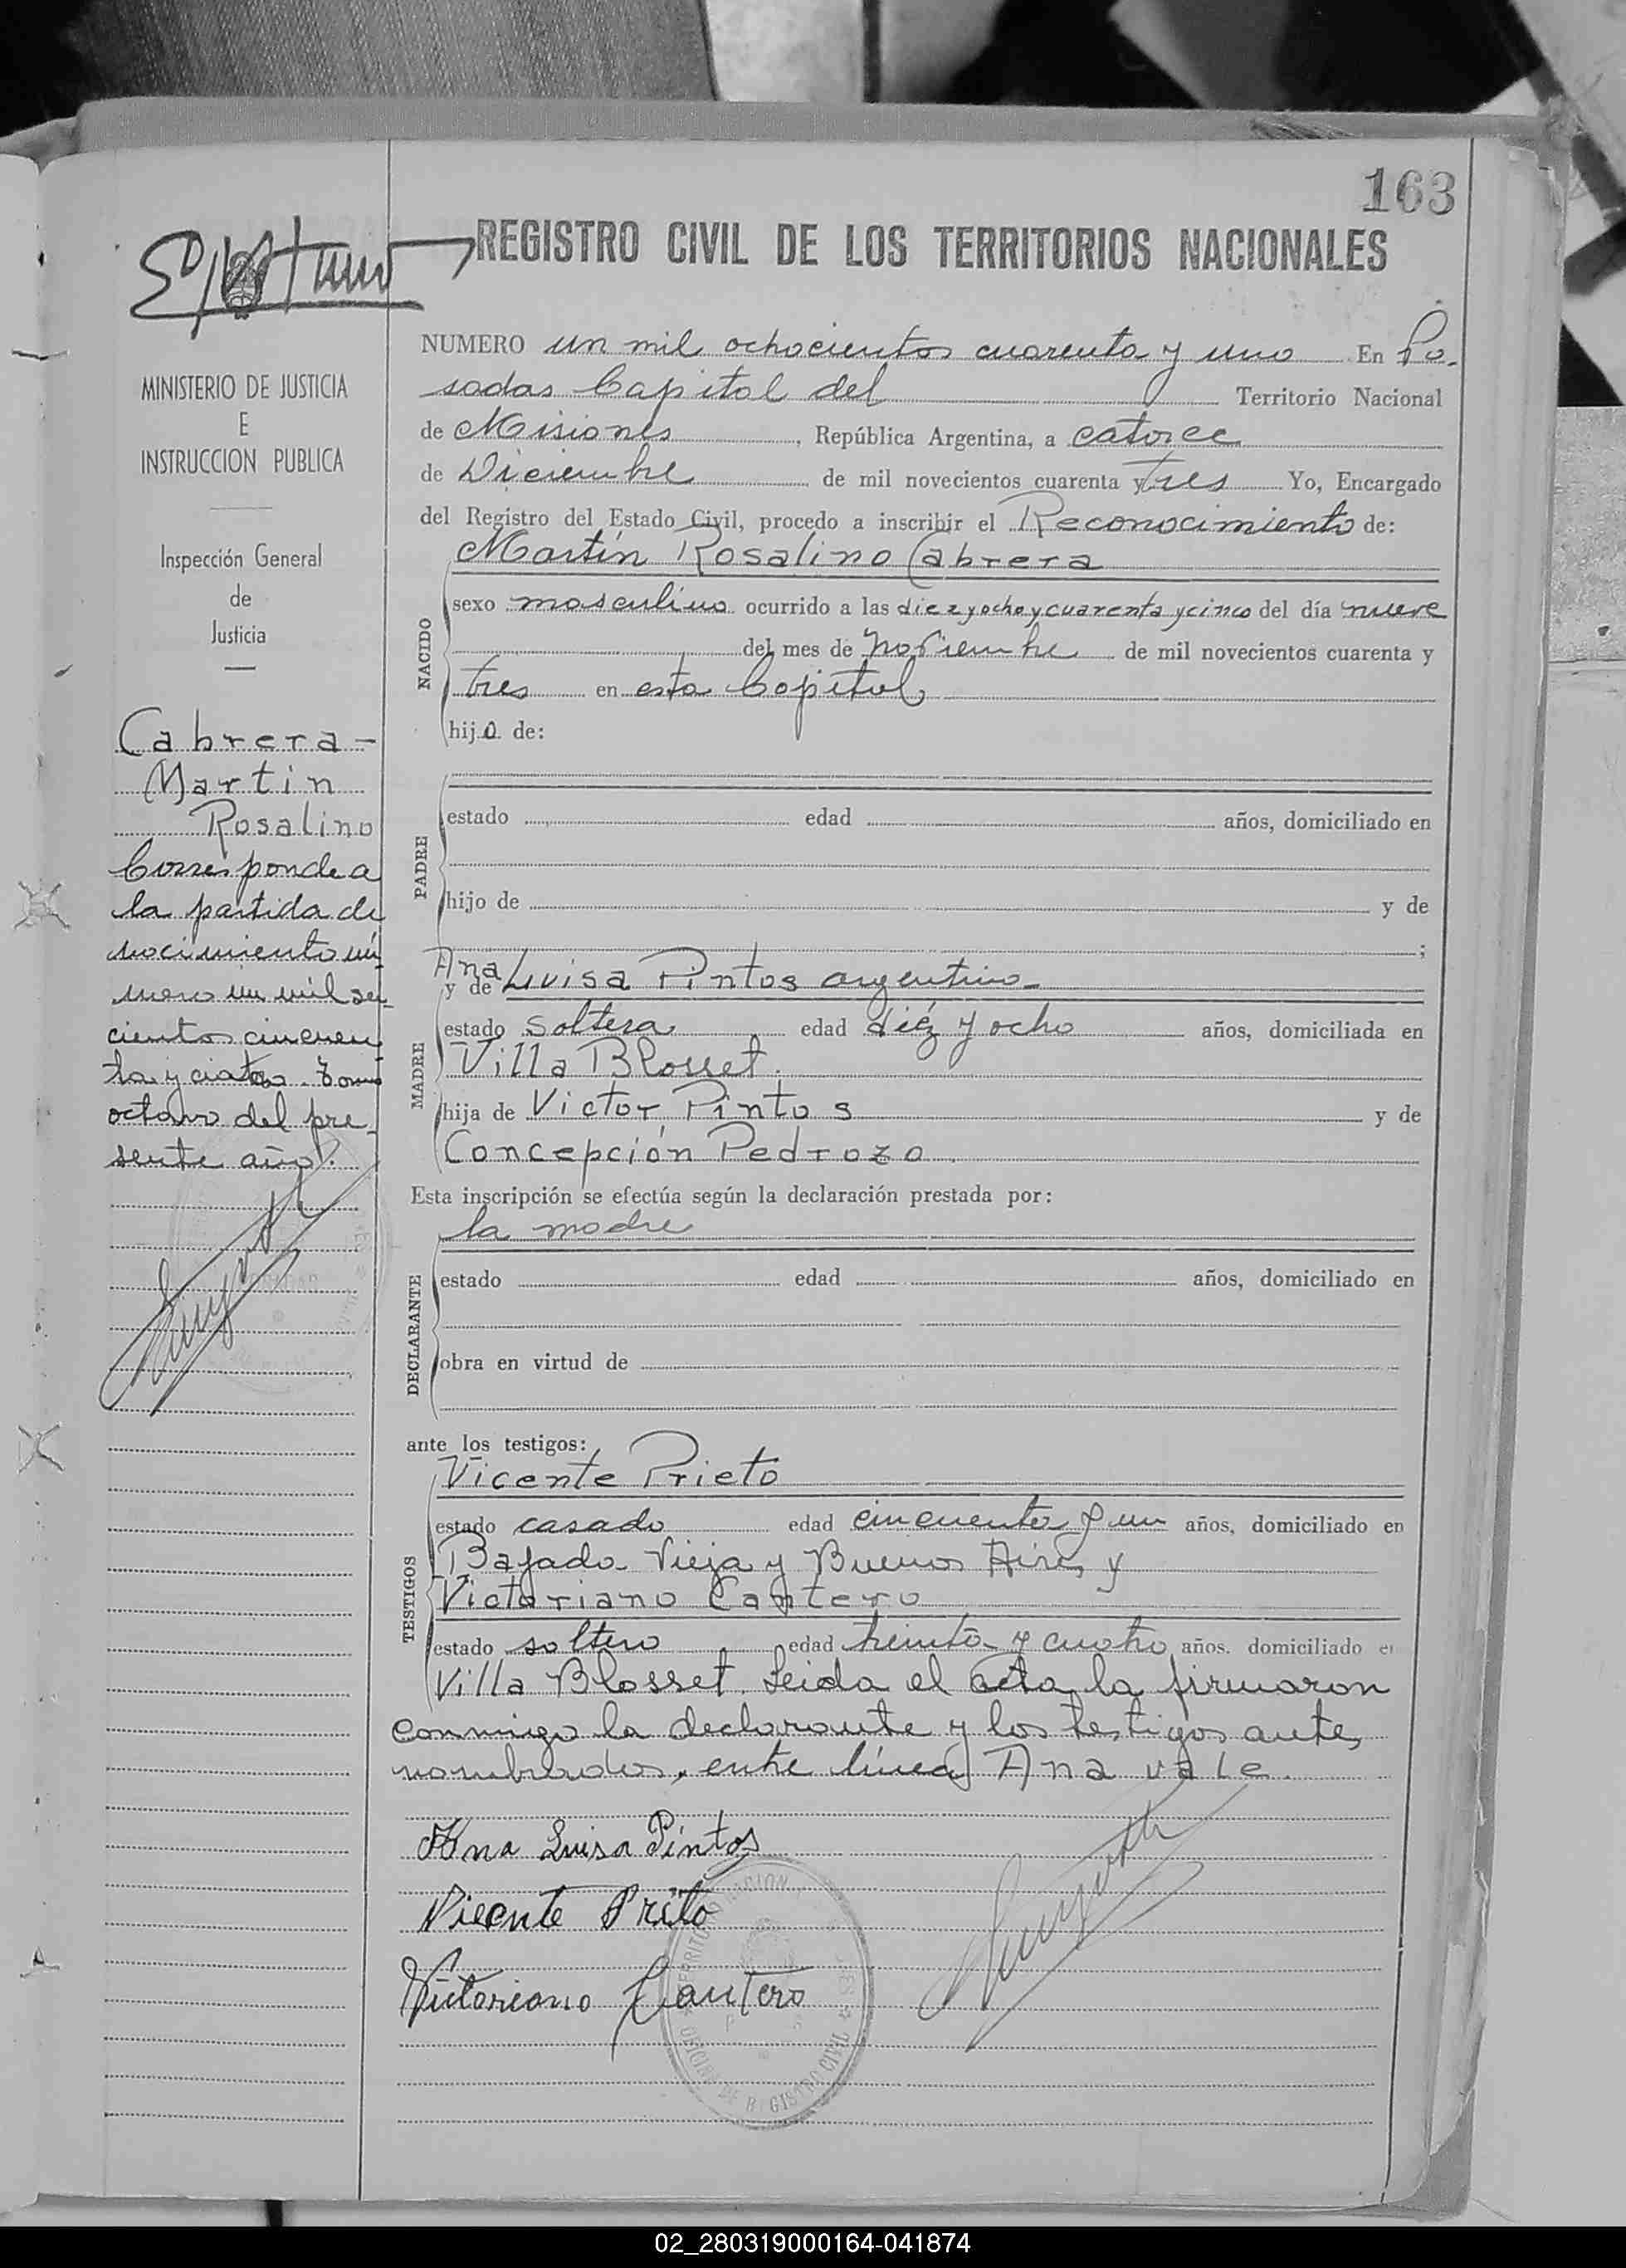 163
REGISTRO CIVIL DE LOS TERRITORIOS NACIONALES
MINISTERIO DE JUSTICIA
E
INSTRUCCION PUBLICA
Inspección General
de
Justicia
Cabrera-
Martin
Rosalino
Corresponde a
la partida de
nacimiento nú-
mero un mil sei-
cientos cincuen
ta y cuatro. Tomo
octavo del pre-
sente año.
NUMERO un mil ochocientos cuarenta y uno En Po-
sadas Capital del Territorio Nacional
de Misiones, República Argentina, a catorce
de Diciembre de mil novecientos cuarenta y tres Yo, Encargado
del Registro del Estado Civil, procedo a inscribir el Reconocimiento de:
Martín Rosalino Cabrera
NACIDO
sexo masculino ocurrido a las diez y ocho y cuarenta y cinco del día nueve
del mes de Noviembre de mil novecientos cuarenta y
tres en esta Capital
hijo de:
PADRE
estado edad años, domiciliado en
hijo de y de
;
Ana
y de Luisa Pintos argentina-
MADRE
estado soltera edad diéz y ocho años, domiciliada en
Villa Blosset.
hija de Victor Pintos y de
Concepción Pedrozo.
Esta inscripción se efectúa según la declaración prestada por:
la madre
DECLARANTE
estado edad años, domiciliado en
obra en virtud de
ante los testigos:
Vicente Prieto
TESTIGOS
estado casado edad cincuenta y un años, domiciliado en
Bajada Vieja y Buenos Aires y
Victoriano Cantero
estado soltero edad treinta y cuatro años. domiciliado e
Villa Blosset. Leida el acta la firmaron
conmigo la declarante y los testigos ante,
nombrados, entre línea Ana vale.
Ana Luisa Pintos
Vicente Prito
Victoriano Cantero
OFICINA DE REGISTRO CIVIL
02_280319000164-041874